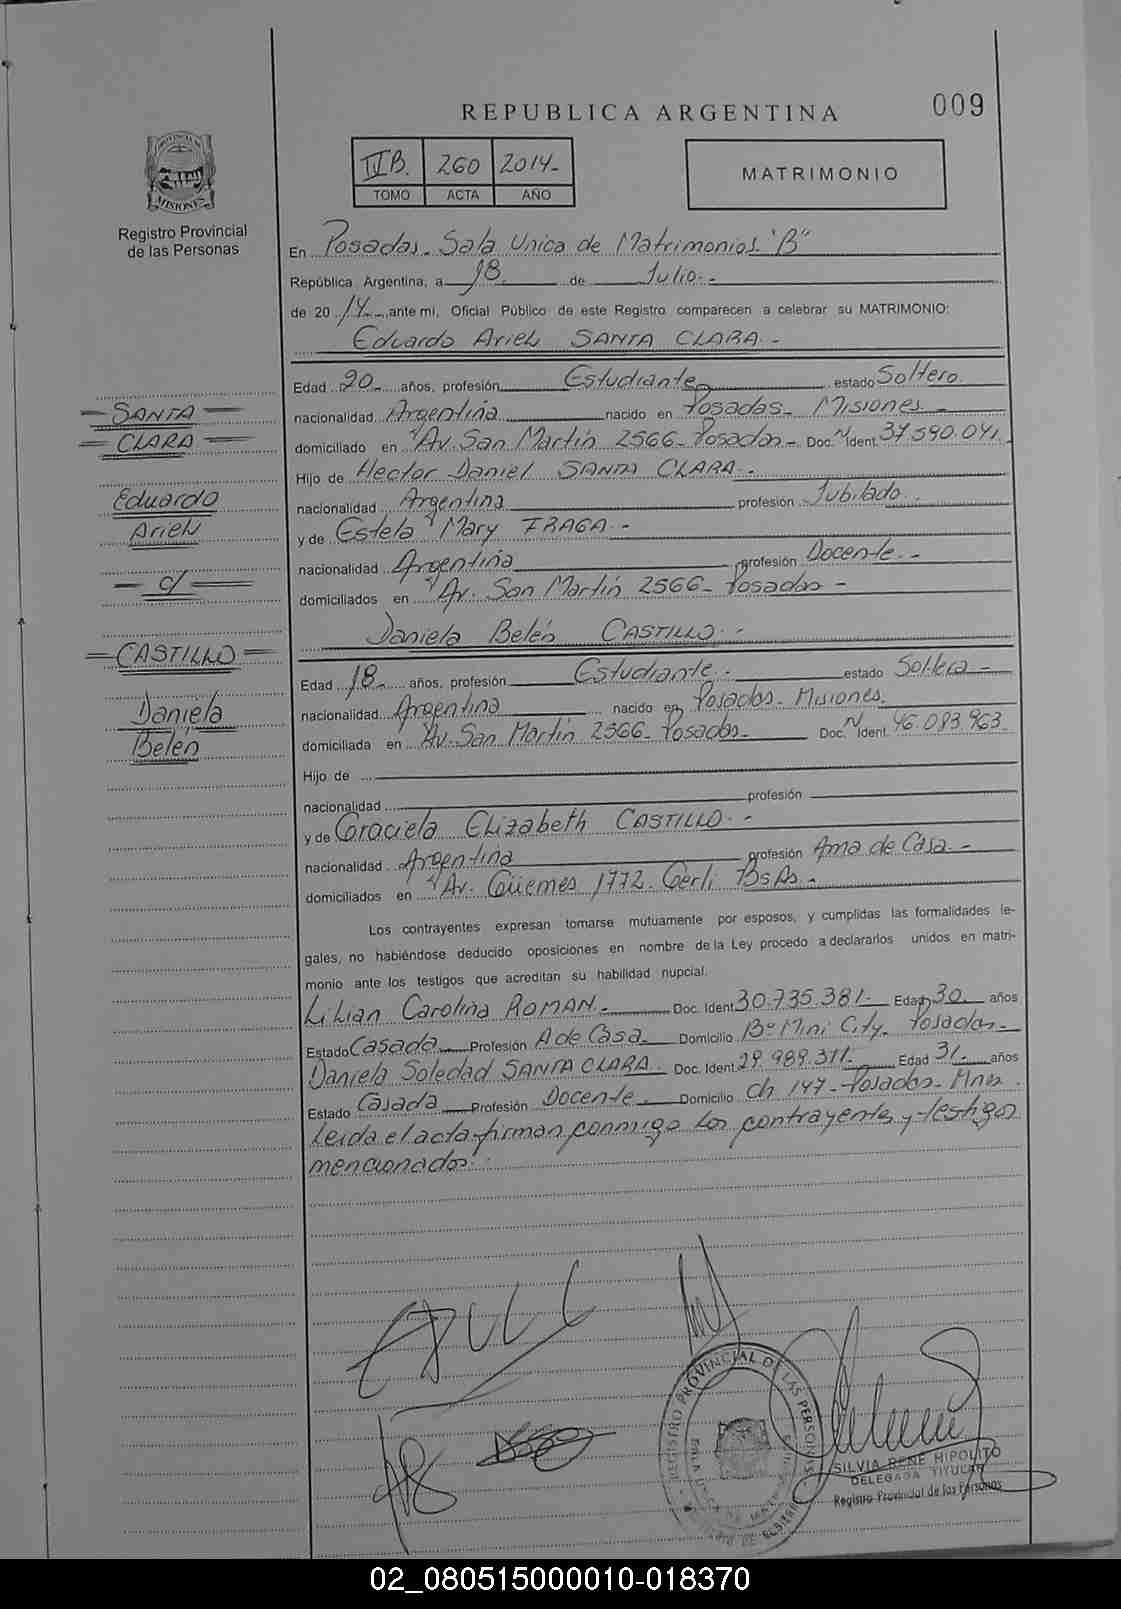 REPUBLICA ARGENTINA
009
IV B. 260 2014-
TOMO ACTA AÑO
MATRIMONIO
PROVINCIA DE
MISIONES
Registro Provincial
de las Personas
En Posadas. Sala Unica de Matrimonios "B"
República Argentina, a 18. de Julio.-
de 20 14 ante mi, Oficial Público de este Registro comparecen a celebrar su MATRIMONIO:
Eduardo Ariel SANTA CLARA.-
Edad 20 años, profesión Estudiante estado Soltero.
nacionalidad Argentina nacido en Posadas- Misiones-
domiciliado en Av. San Martín 2566- Posadas- Doc. N Ident. 37.590.041.
Hijo de Hector Daniel SANTA CLARA.-
nacionalidad Argentina profesión Jubilado.
y de Estela Mary FRAGA.-
nacionalidad Argentina profesión Docente.-
domiciliados en Av. San Martín 2566- Posadas-
Daniela Belén CASTILLO.-
SANTA
CLARA
Eduardo
Ariel
c/
CASTILLO
Daniela
Belén
Edad 18 años, profesión Estudiante.- estado Soltera-
nacionalidad Argentina nacido en Posadas. Misiones.
domiciliada en Av. San Martín 2566- Posadas- Doc. N Ident. 46.083.963
Hijo de
nacionalidad profesión
y de Graciela Elizabeth CASTILLO.-
nacionalidad Argentina profesión Ama de Casa.-
domiciliados en Av. Güemes 1772. Gerli Bs As.-
Los contrayentes expresan tomarse mutuamente por esposos, y cumplidas las formalidades le-
gales, no habiéndose deducido oposiciones en nombre de la Ley procedo a declararlos unidos en matri-
monio ante los testigos que acreditan su habilidad nupcial.
Lilian Carolina ROMAN.- Doc. Ident 30.735.381.- Edad 30 años
Estado Casada Profesión A de Casa Domicilio B° Mini City. Posadas-
Daniela Soledad SANTA CLARA Doc. Ident 29.989.311. Edad 31. años
Estado Casada Profesión Docente. Domicilio Ch 147- Posadas- Mnes.
Leida el acta firman conmigo los contrayentes y testigos
mencionados.
REGISTRO PROVINCIAL DE LAS PERSONAS
SILVIA RENE HIPOLITO
DELEGADA TITULAR
Registro Provincial de las Personas
02_080515000010-018370